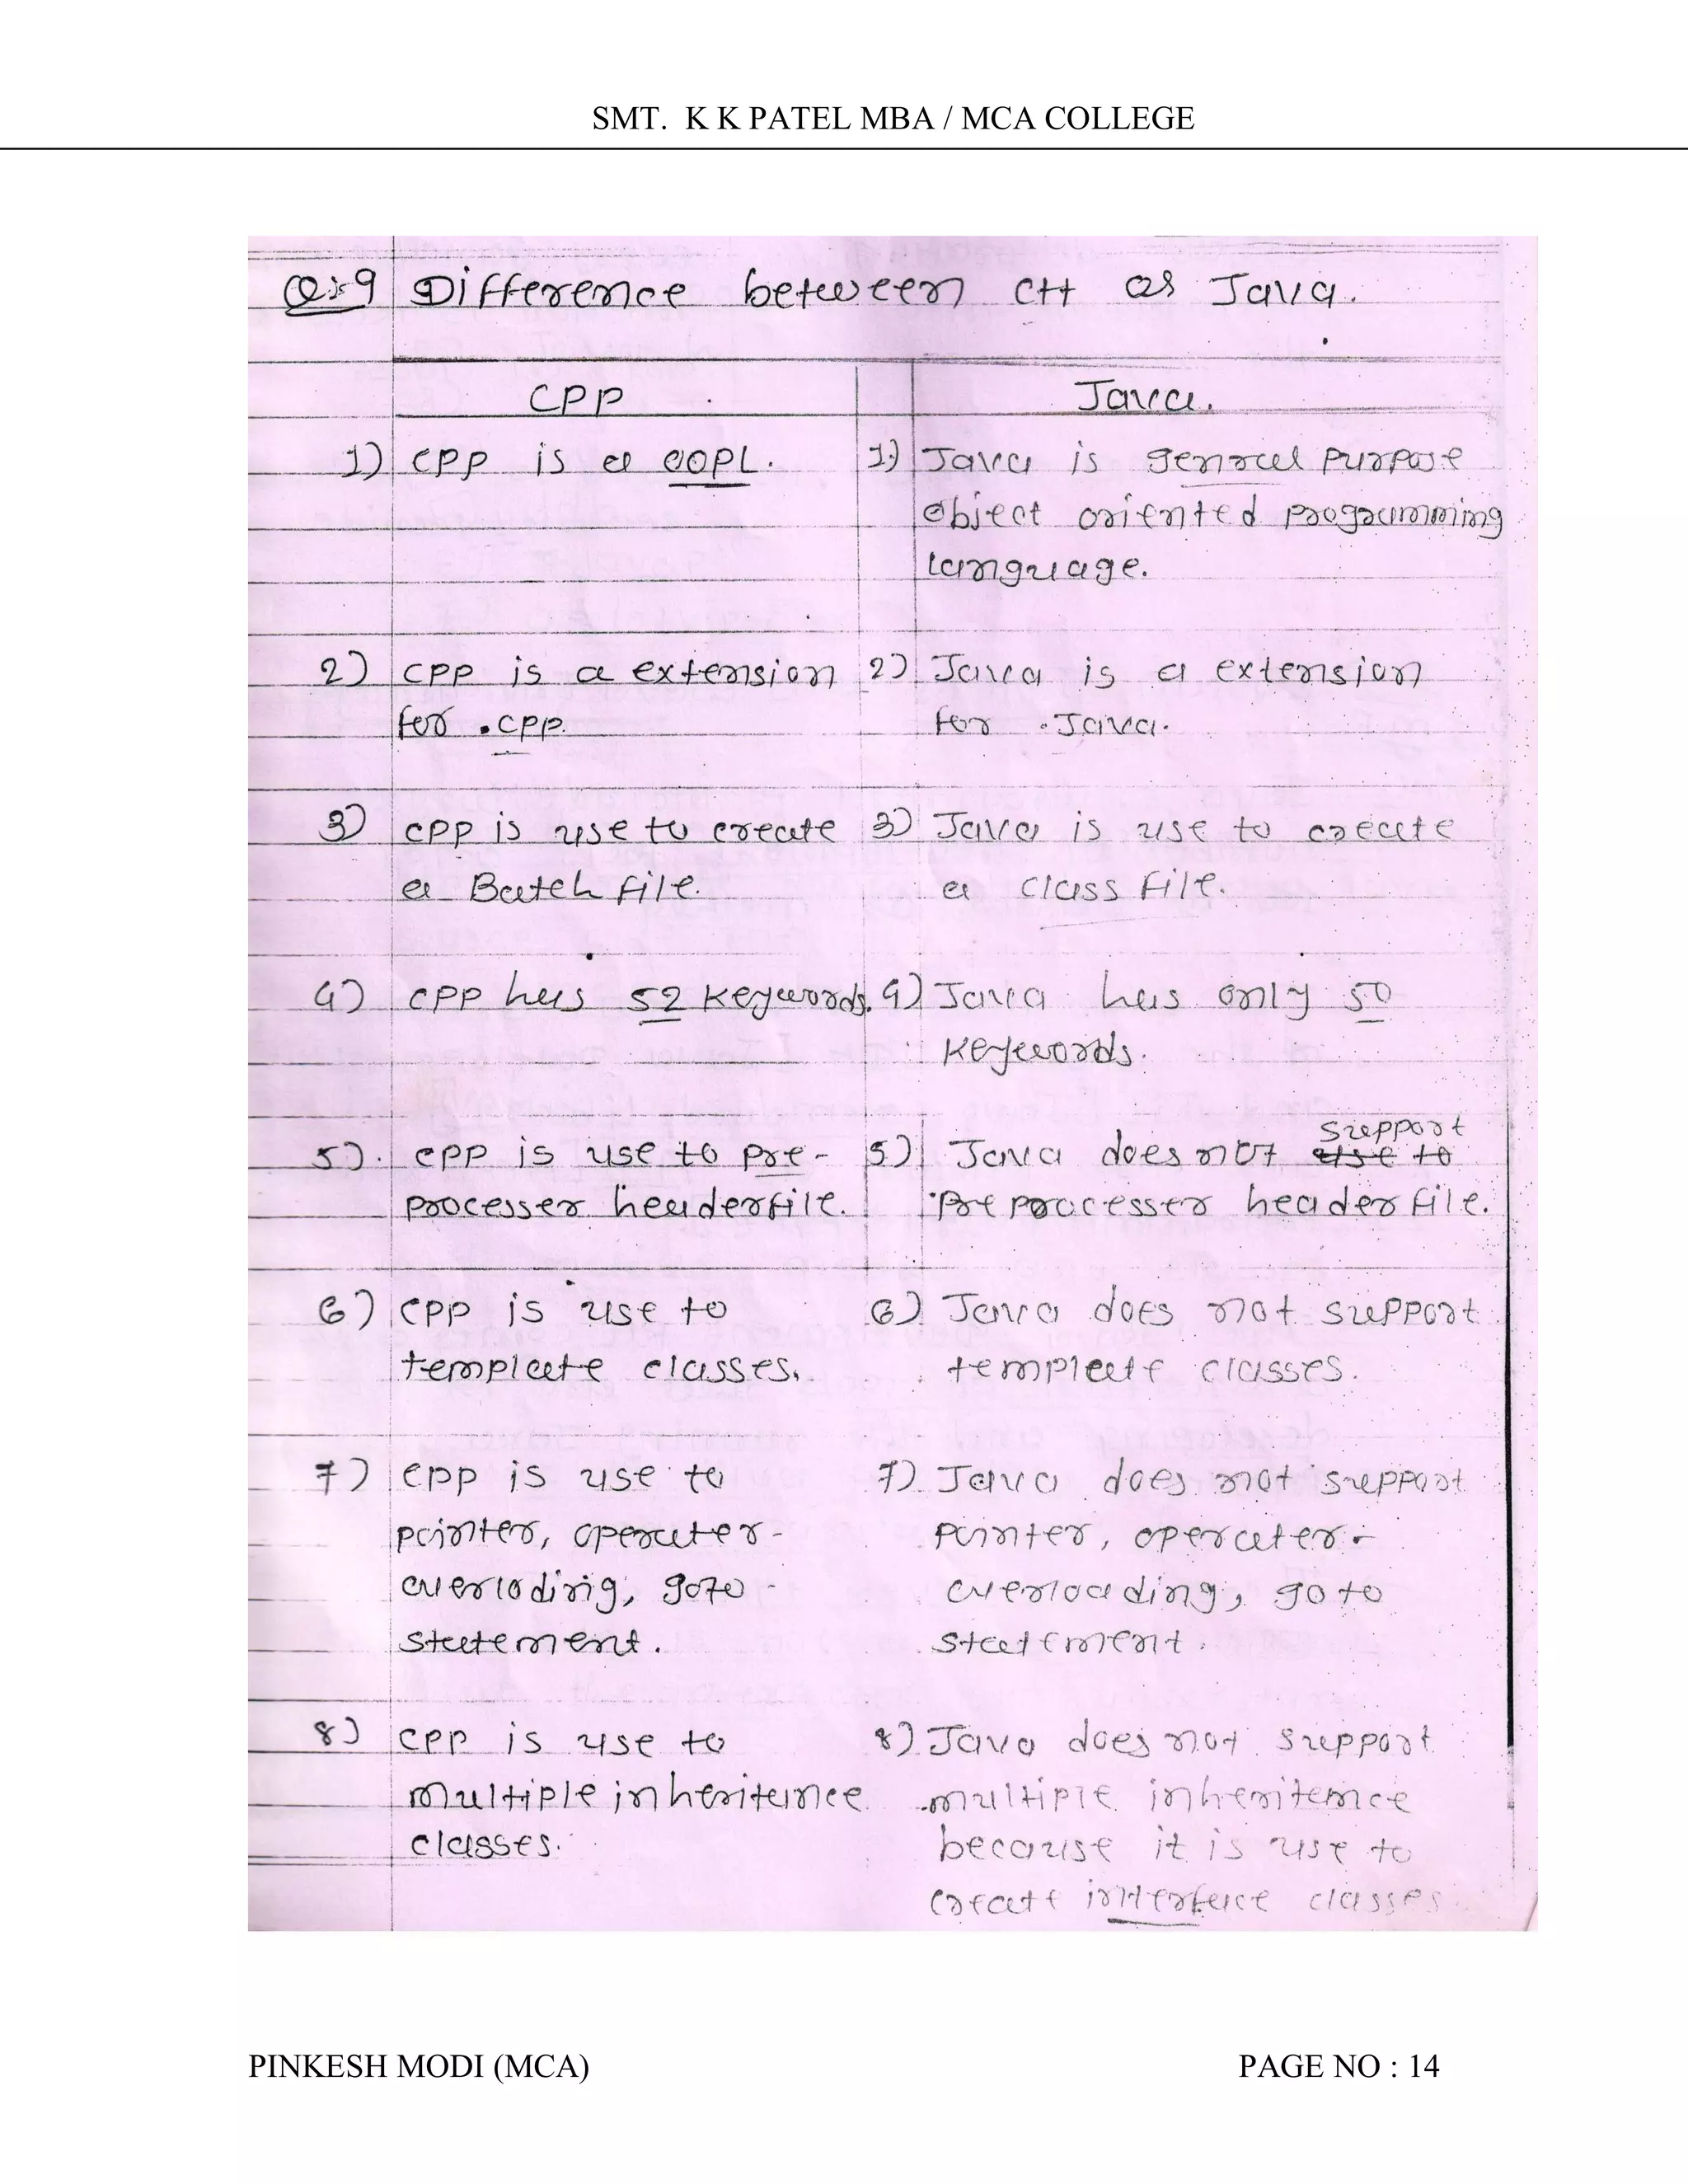 SMT. K K PATEL MBA / MCA COLLEGE
Q:9 Difference between C++ as Java.
CPP
Java.
1) CPP is a OOPL.
1) Java is genral purpose
object oriented programming
language.
2) CPP is a extension
for .cpp.
2) Java is a extension
for .Java.
3) CPP is use to create
a Batch file.
3) Java is use to create
a class file.
4) CPP has 52 keywords.
4) Java has only 50
keywords.
5). CPP is use to pre-
processer headerfile.
5) Java does not use to support
Preprocesser header file.
6) CPP is use to
template classes.
6) Java does not support
template classes.
7) CPP is use to
pointer, operater-
overloding, goto-
statement.
7) Java does not support
pointer, operater-
overloading, goto
statement.
8) CPP is use to
multiple inheritance
classes.
8) Java does not support
multiple inheritence
because it is use to
create interface classes
PINKESH MODI (MCA)
PAGE NO : 14